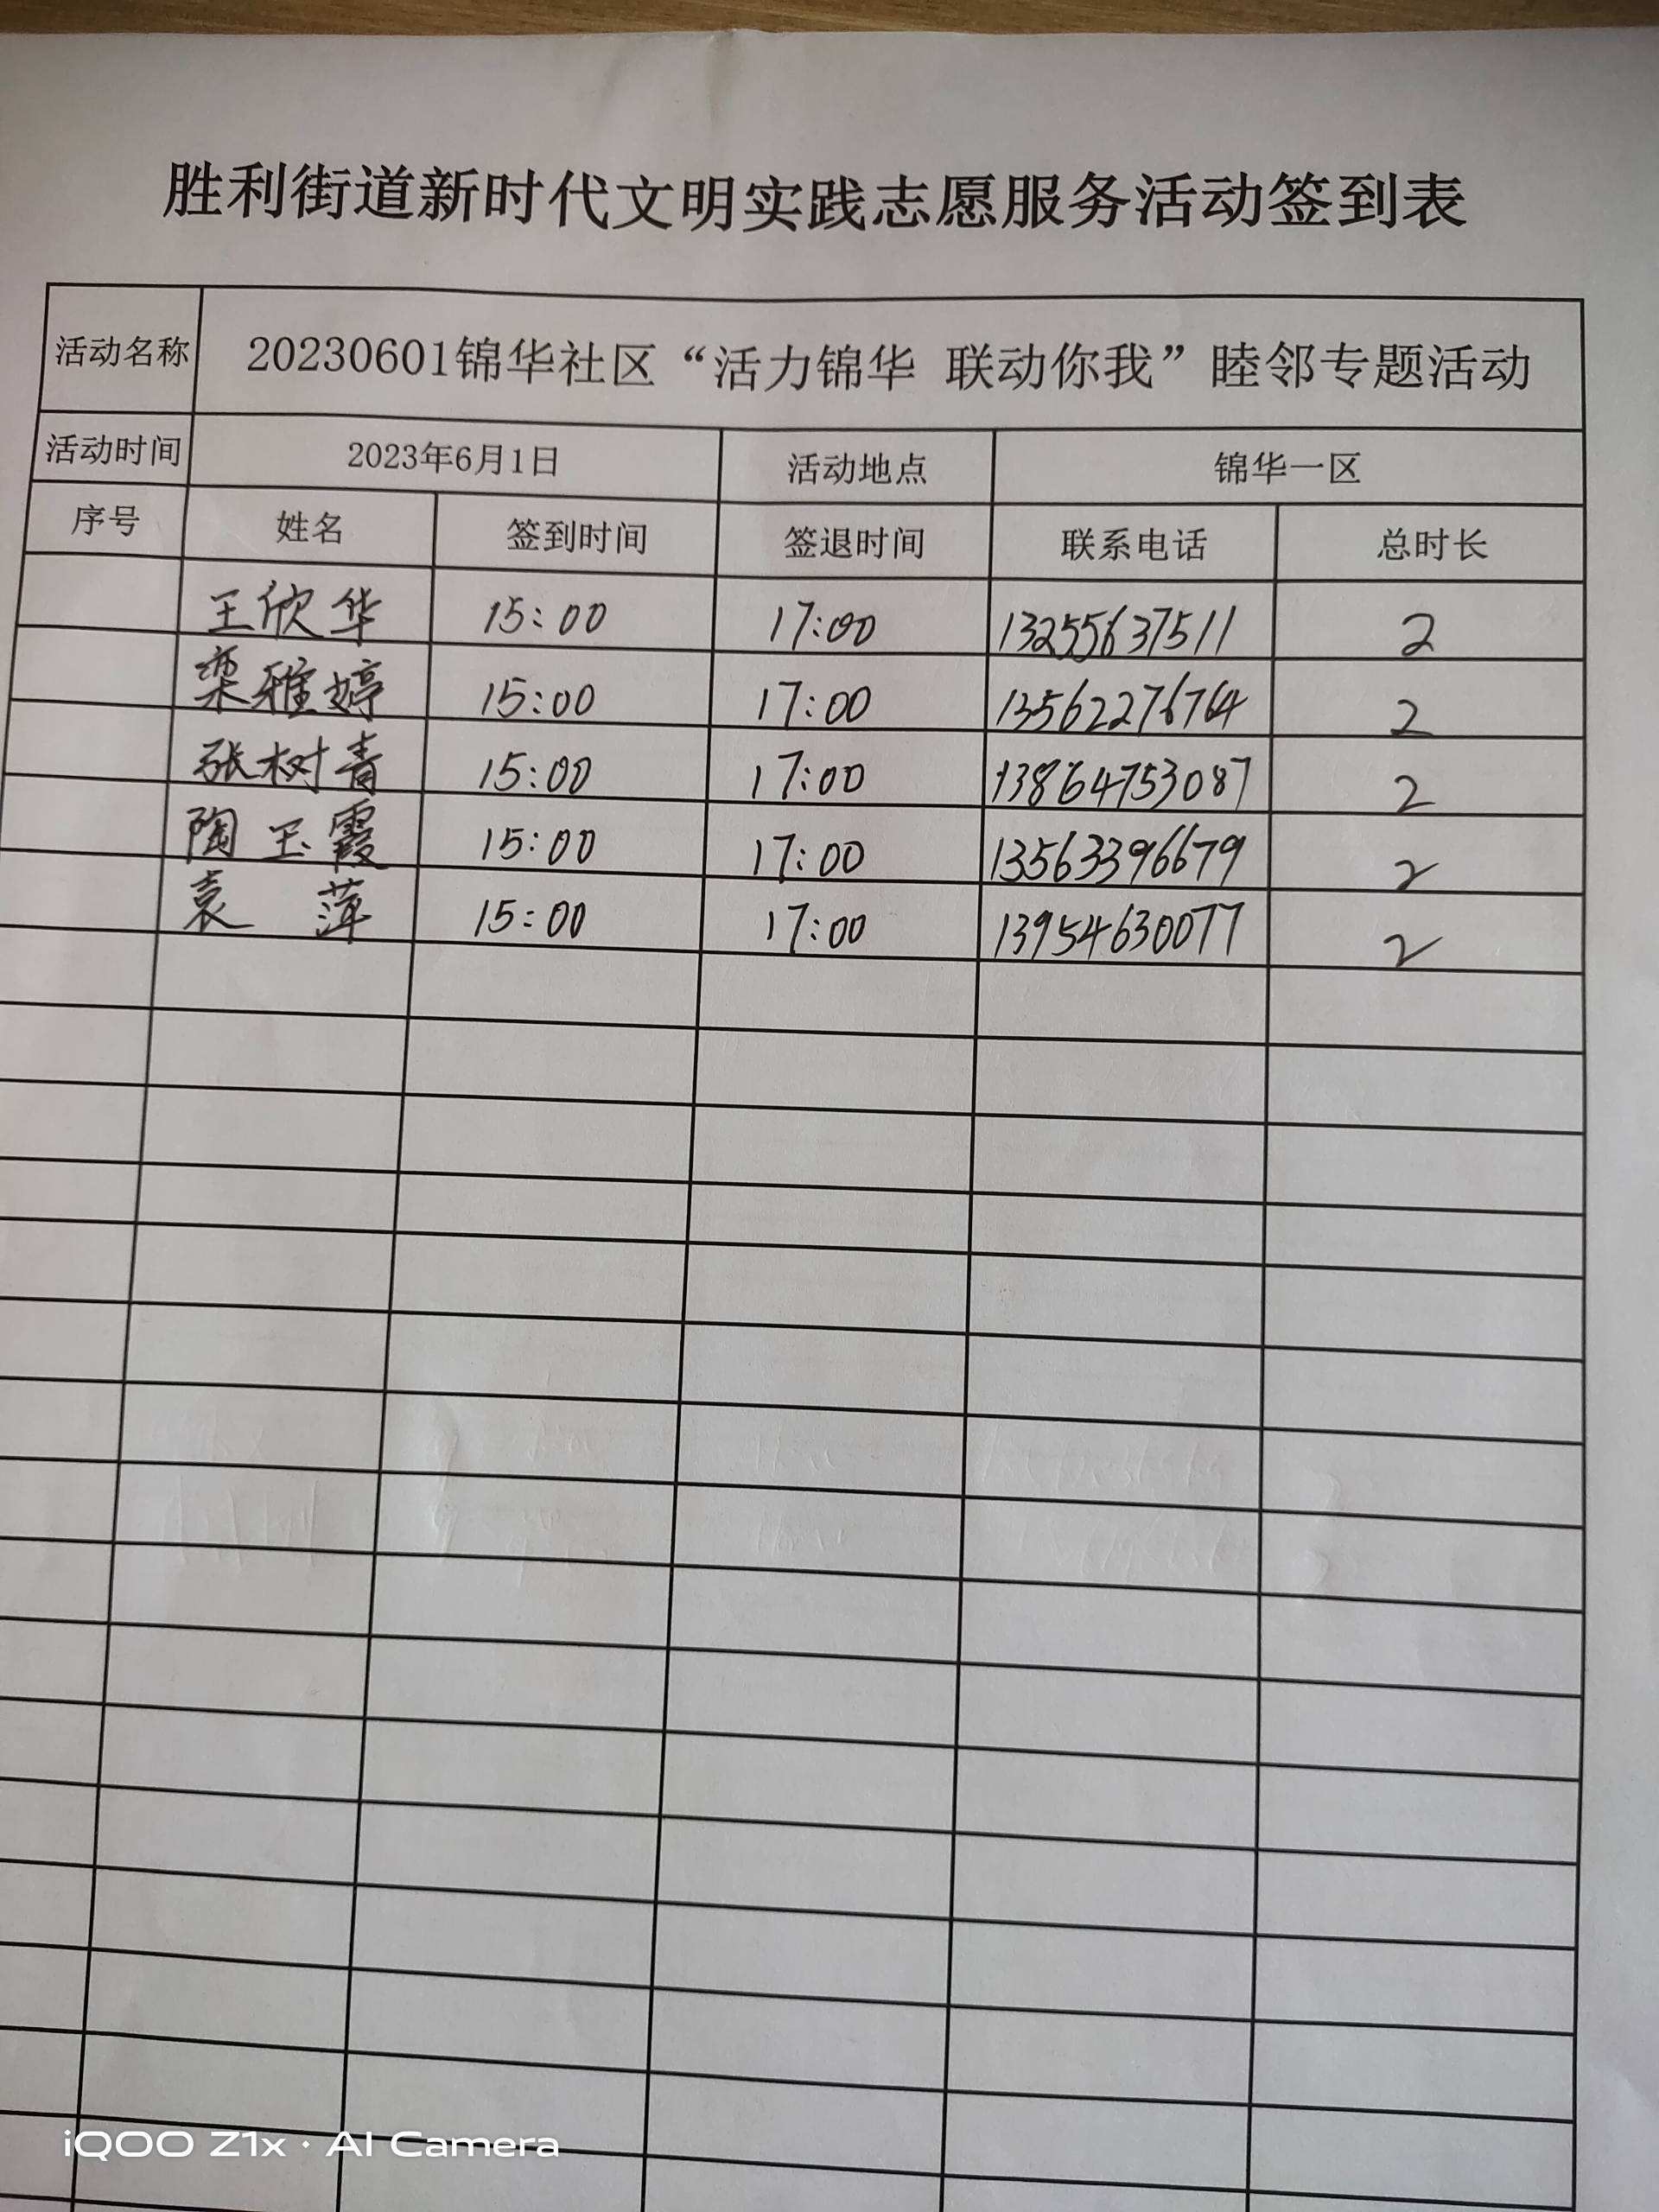 胜利街道新时代文明实践志愿服务活动签到表
活动名称 20230601锦华社区“活力锦华 联动你我”睦邻专题活动
活动时间 2023年6月1日 活动地点 锦华一区
序号 姓名 签到时间 签退时间 联系电话 总时长
王欣华 15:00 17:00 13255637511 2
栾雅婷 15:00 17:00 13562276764 2
张树青 15:00 17:00 13864753087 2
陶玉霞 15:00 17:00 13563396679 2
袁 萍 15:00 17:00 13954630077 2
iQOO Z1x · AI Camera